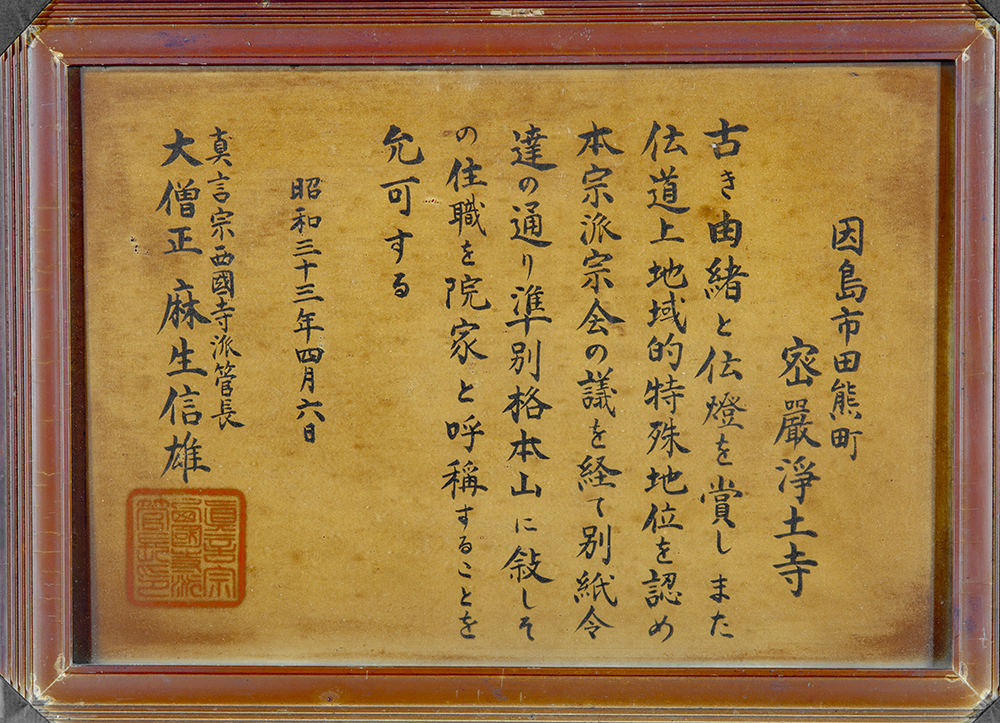 因島市田熊町
密嚴淨土寺
古き由緒と伝燈を賞しまた
伝道上地域的特殊地位を認め
本宗派宗会の議を経て別紙令
達の通り準別格本山に敍しそ
の住職を院家と呼稱することを
允可する
昭和三十三年四月六日
真言宗西國寺派管長
大僧正麻生信雄
眞言宗
西國寺派
管長印